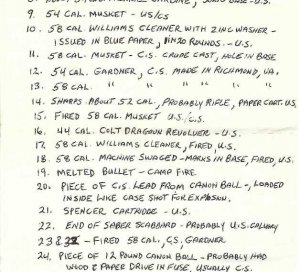 9. 54 CAL. MUSKET - US/CS
10. 58 CAL WILLIAMS CLEANER WITH ZINC WASHER -
ISSUED IN BLUE PAPER, 1 IN 20 ROUNDS. - U.S.
11. 58 CAL. MUSKET - C.S. CRUDE CAST, HOLE IN BASE
12. 54 CAL. GARDNER, C.S. MADE IN RICHMOND, VA.
13. 58 CAL. " " " " "
14. SHARPS ABOUT 52 CAL, PROBABLY RIFLE, PAPER CART. U.S.
15. FIRED 58 CAL. MUSKET U.S./C.S.
16. 44 CAL. COLT DRAGOUN REVOLVER - U.S.
17. 58 CAL. WILLIAMS CLEANER, FIRED, U.S.
18. 58 CAL. MACHINE SWAGED - MARKS IN BASE, FIRED, U.S.
19. MELTED BULLET - CAMP FIRE
20. PIECE OF C.S. LEAD FROM CANON BALL -, LOADED
INSIDE LIKE CASE SHOT FOR EXPLOSION.
21. SPENCER CARTRIDGE - U.S.
22. END OF SABER SCABBARD - PROBABLY U.S. CALVARY
23 & - FIRED 58 CAL., CS, GARDNER
24. PIECE OF 12 POUND CANON BALL - PROBABLY HAD
WOOD & PAPER DRIVE IN FUSE, USUALLY C.S.